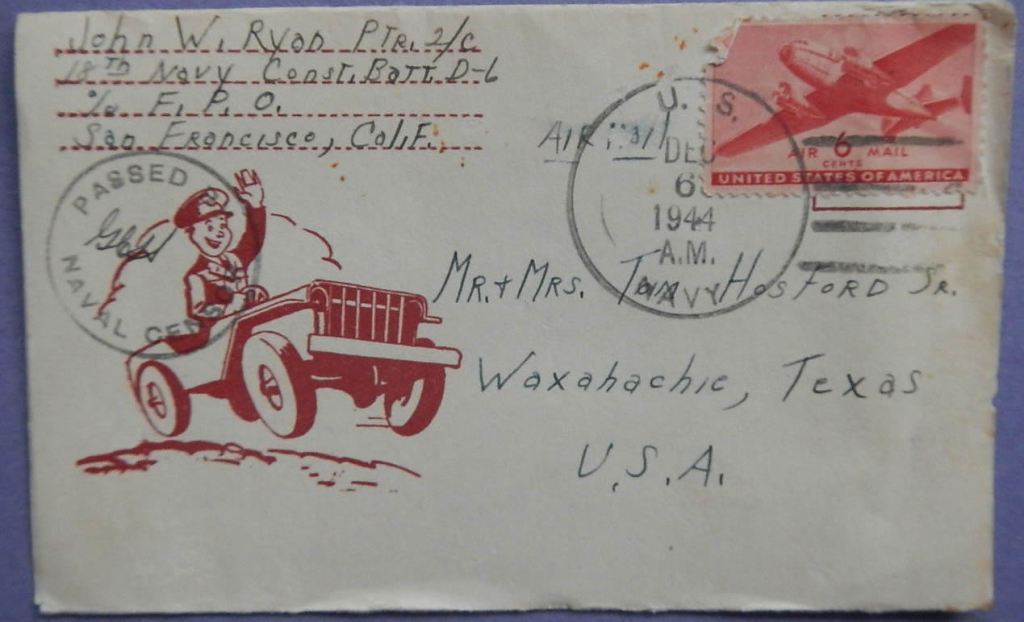 John W. Ryan Ptr. 2/c
18TH Navy Const. Batt. D-6
c/o F. P. O.
San Francisco, Calif.
AIR MAIL
U. S.
DEC
6
1944
A.M.
NAVY
AIR 6 MAIL
CENTS
UNITED STATES OF AMERICA
PASSED
NAVAL CENSOR
MR. + MRS. Tom HOSFORD Sr.
Waxahachie, Texas
U.S.A.